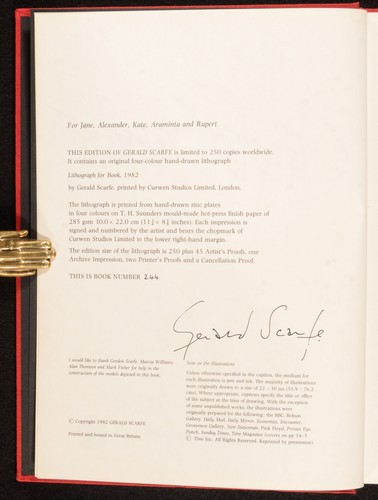 For Jane, Alexander, Kate, Araminta and Rupert
THIS EDITION OF GERALD SCARFE is limited to 250 copies worldwide.
It contains an original four-colour hand-drawn lithograph
Lithograph for Book, 1982
by Gerald Scarfe, printed by Curwen Studios Limited, London.
The lithograph is printed from hand-drawn zinc plates
in four colours on T. H. Saunders mould-made hot-press finish paper of
285 gsm
(11¾ × 8⅝ inches). Each impression is
signed and numbered by the artist and bears the chopmark of
Curwen Studios Limited in the lower right-hand margin.
The edition size of the lithograph is 250 plus 45 Artist's Proofs, one
Archive Impression, two Printer's Proofs and a Cancellation Proof.
THIS IS BOOK NUMBER 244
Gerald Scarfe
I would like to thank Gordon Scarfe, Marcia Williams,
Alan Thomson and Mark Fisher for help in the
construction of the models depicted in this book.
© Copyright 1982 GERALD SCARFE
Printed and bound in Great Britain
Note on the illustrations
Unless otherwise specified in the caption, the medium for
each illustration is pen and ink. The majority of illustrations
were originally drawn to a size of 22 × 30 ins (55.9 × 76.2
cms). Where appropriate, captions specify the title or office
of the subject at the time of drawing. With the exception
of some unpublished works, the illustrations were
originally prepared for the following: the BBC, Bohun
Gallery, Daily Mail, Daily Mirror, Economist, Encounter,
Grosvenor Gallery, New Statesman, Pink Floyd, Private Eye,
Punch, Sunday Times, Time Magazine (covers on pp 54-5
© Time Inc. All Rights Reserved. Reprinted by permission).